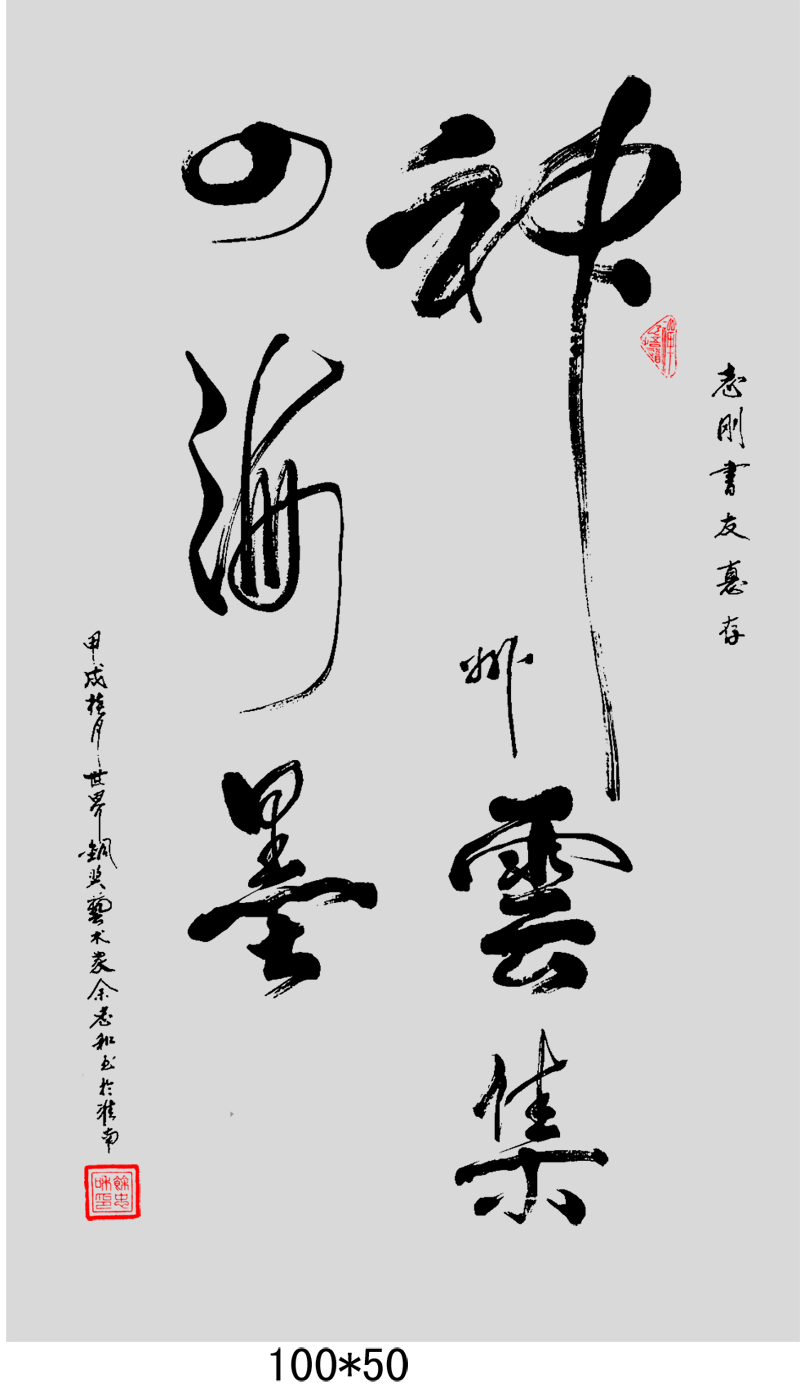 志刚書友惠存
神州雲集
四海墨
甲戌桂月世界銅奖藝术家余志和书於淮南
100*50